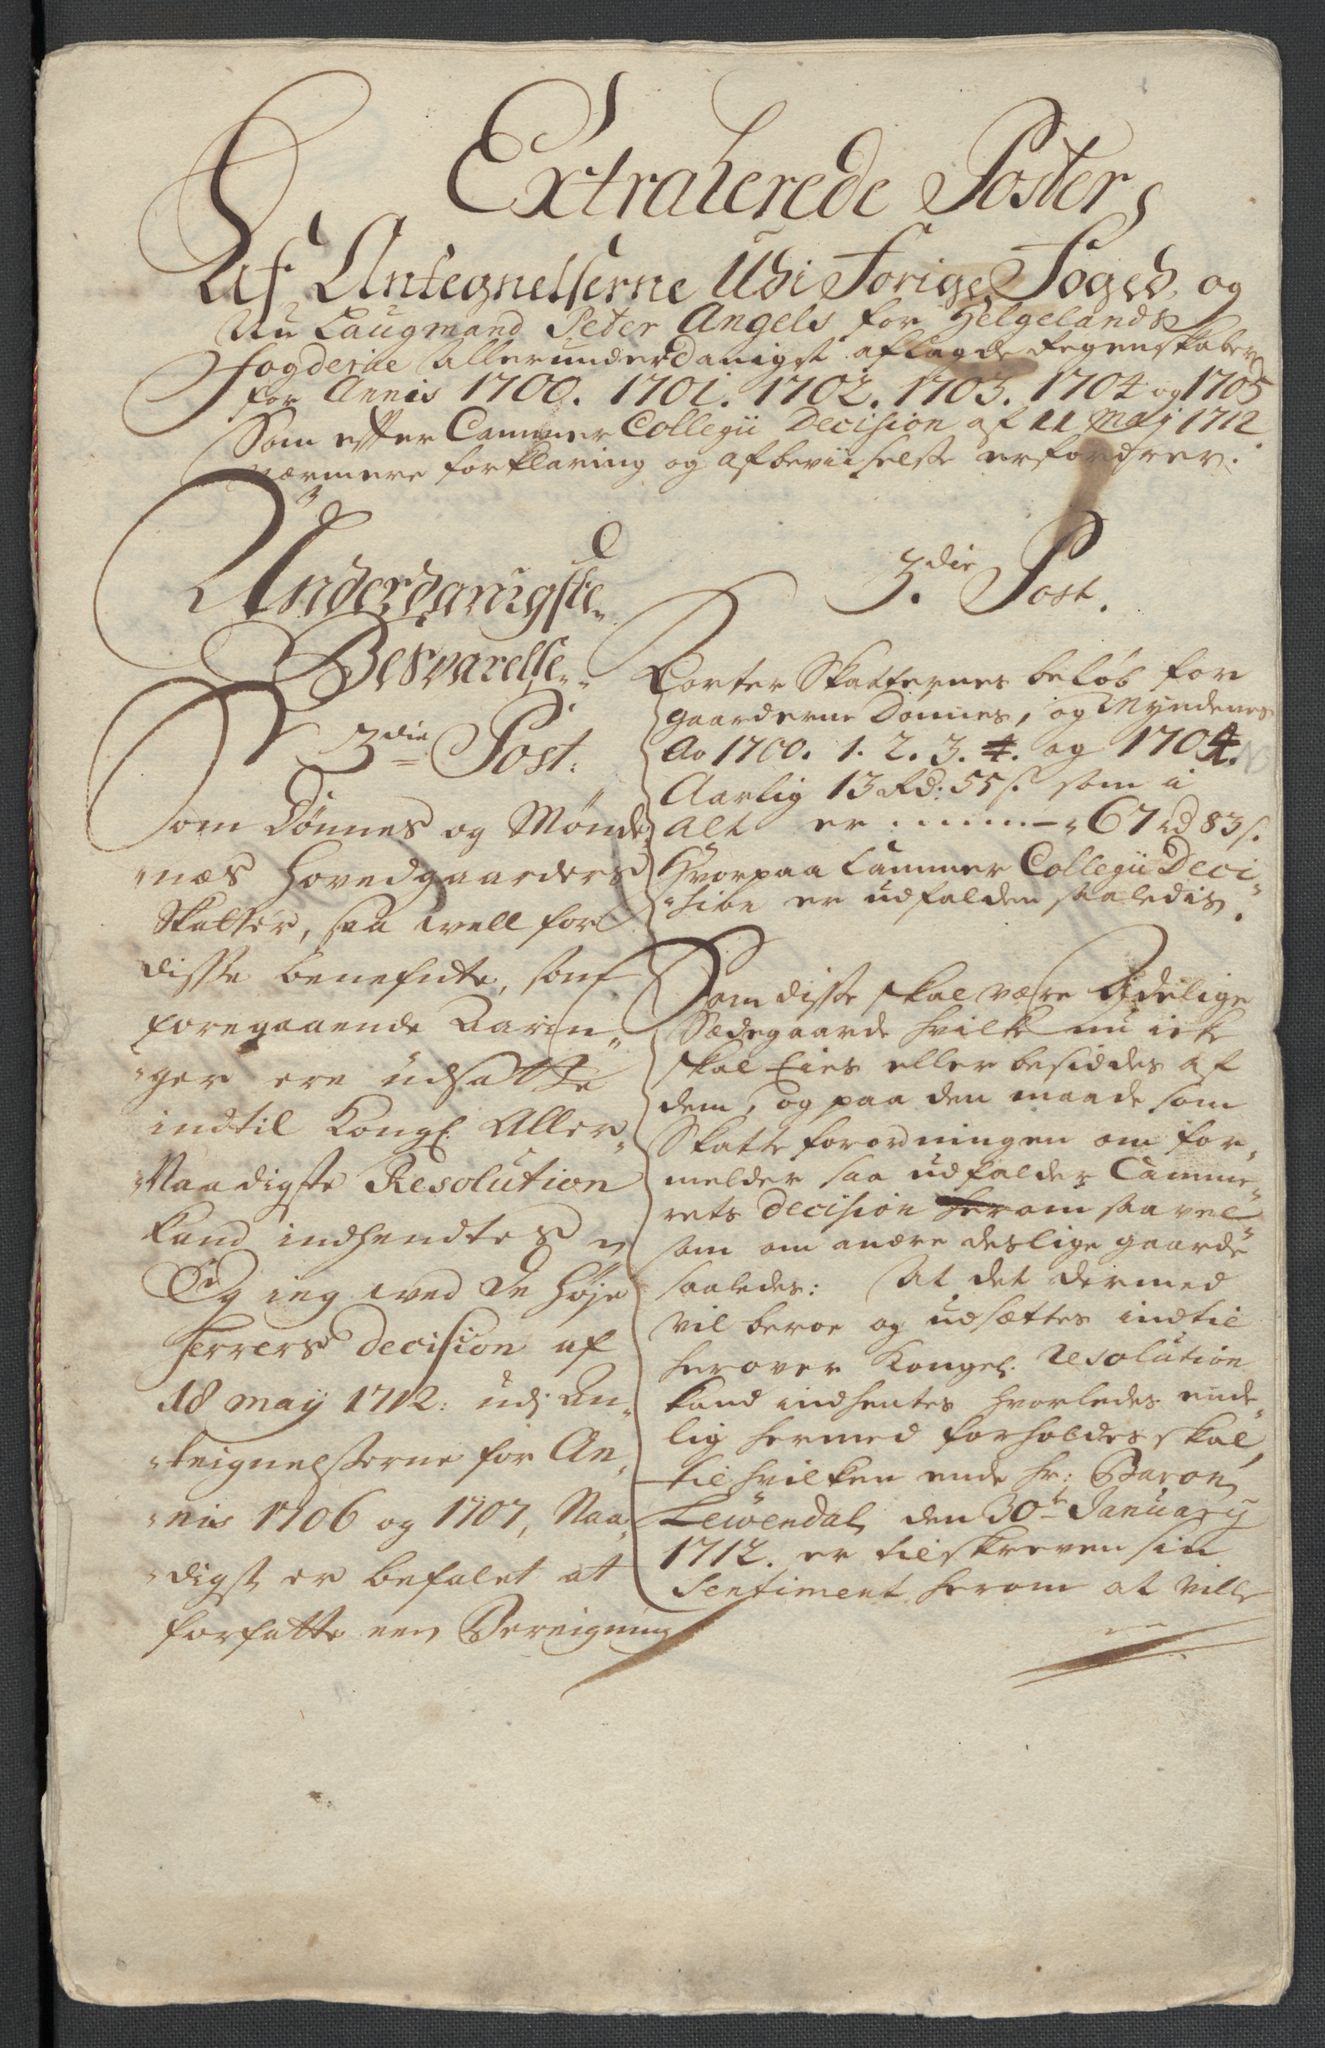 Extraherede Poster
Af Antegnelserne Udi Forige Foged, og
Nu Laugmand Peter Angels for Helgelands
Fogderie allerunderdanigst aflagde Regenskaber
for Annis 1700. 1701. 1702. 1703. 1704 og 1705
Som efter Cammer Collegii Decision af 11 Maij 1712
nærmere forklaring og afbeviiselse erfordrer.
Underdanigste
Besvarelse
3die Post.
Som Dønnes og Mønde,
"næs Hovedgaarders
Skatter, saa well for
disse benefnte, som
foregaaende Aarin"
"ger ere udsatte
indtil Kongl. Aller"
"Naadigste Resolution
kand indhendtes
Og ieg wed De Høje
Herrers Decision af
18 maij 1712: udj An"
"teignelserne for An"
"nis 1706 og 1707, Naa"
"digst er befalet at
forfatte een Bereigning
3die Post.
Korter Skatternes beløb for
gaarderne Dønnes, og Myndenes
Ao 1700. 1. 2. 3. 4. og 1704.
Aarlig 13 Rd: 55 s. som i
Alt er ......... 67 rd 83 s.
Hvorpaa Cammer Collegii Deci"
"sion er udfalden saaledis.
Som disse skal være Adelige
Sædegaarde hvilke nu icke
skal Eies eller besiddes af
dem, og paa den maade som
Skatte forordningen om for"
melder saa udfalder Camme"
rets Decision herom saavel
som om andre deslige gaarde
saaledes: At det dermed
vil beroe og udsættes indtil
herover Kongel. Resolution
kand indhentes hvorledes ende"
lig hermed forholdes skal,
til hvilken ende Hr: Baron
Lewendal den 30te January
1712. er tilskreven sin
Sentiment herom at ville